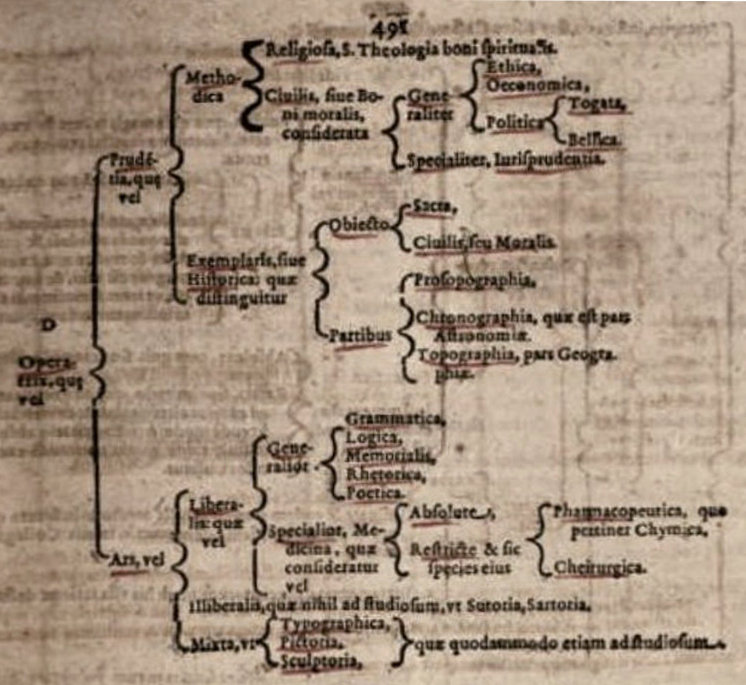 491
Religiosa, S. Theologia boni spiritualis.
Metho-
dica
Ciuilis, siue Bo-
ni moralis,
considerata
Gene-
raliter
Ethica,
Oeconomica,
Politica
Togata,
Bellica.
Specialiter, Iurisprudentia.
Prudē-
tia, quę
vel
Exemplaris, siue
Historica: quæ
distinguitur
Obiecto
Sacra,
Ciuilis, seu Moralis.
Partibus
Prosopographia,
Chronographia, quæ est pars
Astronomiæ.
Topographia, pars Geogra-
phiæ.
D
Opera-
trix, quę
vel
Ars, vel
Libera-
lis: quæ
vel
Gene-
ralior
Grammatica,
Logica,
Memorialis,
Rhetorica,
Poetica.
Specialior, Me-
dicina, quæ
consideratur
vel
Absolute,
Restricte & sic
species eius
Pharmacopeutica, quo
pertinet Chymica,
Cheirurgica.
Illiberalia, quæ nihil ad studiosum, vt Sutoria, Sartoria.
Mixta, vt
Typographica,
Pictoria,
Sculptoria,
quæ quodammodo etiam ad studiosum.